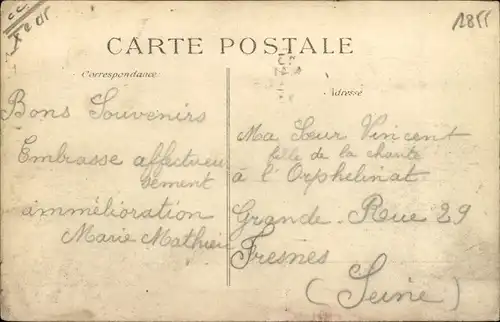 1855
CARTE POSTALE
Correspondance
Adresse
Bons Souvenirs
Embrasse affectueu
sement
ammélioration
Marie Mathieu
Ma Sœur Vincent
fille de la charité
à l'Orphelinat
Grande. Rue 29
Fresnes
(Seine)